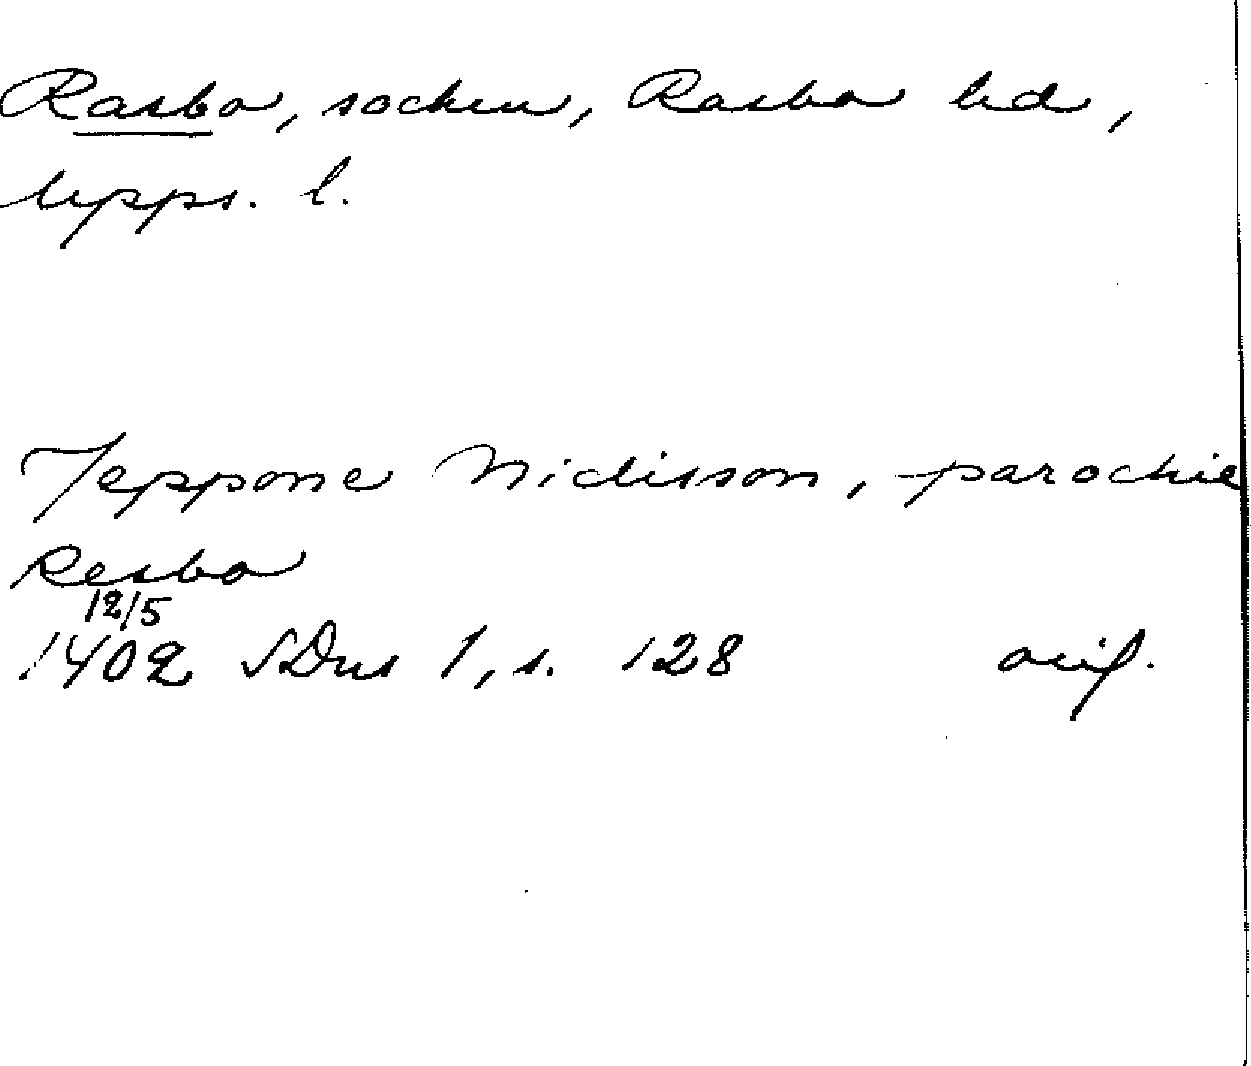 Rasbo, socken, Rasbo hd,
Upps. l.
Jeppone Nidisson, parochie
Resbo
12/5
1402 SDns 1, s. 128 orig.